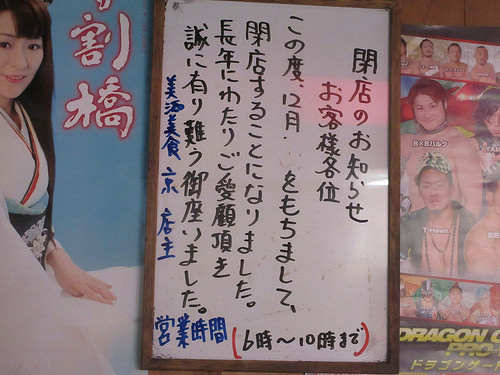 閉店のお知らせ
お客様各位
この度、12月 をもちまして、
閉店することになりました。
長年にわたりご愛顧頂き
誠に有り難う御座いました。
美酒美食 京 店主
営業時間(6時〜10時まで)
割橋
B×Bハルク
YAM
T-Hawk
DRAGON G
PRO
ドラゴンゲート